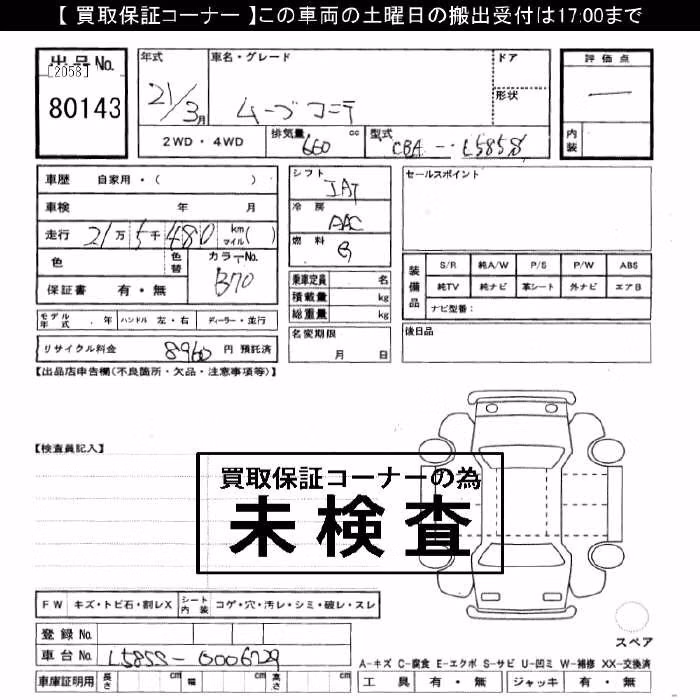 【 買取保証コーナー 】この車両の土曜日の搬出受付は17:00まで
出品No.
[2058]
80143
年式
21/3月
車名・グレード
ムーブ コンテ
ドア
形状
2WD・4WD
排気量
660 cc
型式
CBA - L585S
評価点
内装
車歴 自家用・( )
車検 年 月
走行 21万5千480 km マイル( )
色
色替
カラーNo.
B70
保証書 有・無
シフト
IAT
冷房
AAC
燃料
G
乗車定員 名
積載量 kg
総重量 kg
名変期限
月 日
セールスポイント
装備品
S/R 純A/W P/S P/W ABS
純TV 純ナビ 革シート 外ナビ エアB
ナビ型番:
後日品
モデル年式 . 年 ハンドル 左・右 ディーラー・並行
リサイクル料金 8960 円 預託済
【出品店申告欄(不良箇所・欠品・注意事項等)】
【検査員記入】
買取保証コーナーの為
未検査
FW キズ・トビ石・割レX シート内装 コゲ・穴・汚レ・シミ・破レ・スレ
登録No.
車台No. L585S-0006729
車庫証明用 長さ cm 幅 cm cm
スペア
A-キズ C-腐食 E-エクボ S-サビ U-凹ミ W-補修 XX-交換済
工具 有・無 ジャッキ 有・無